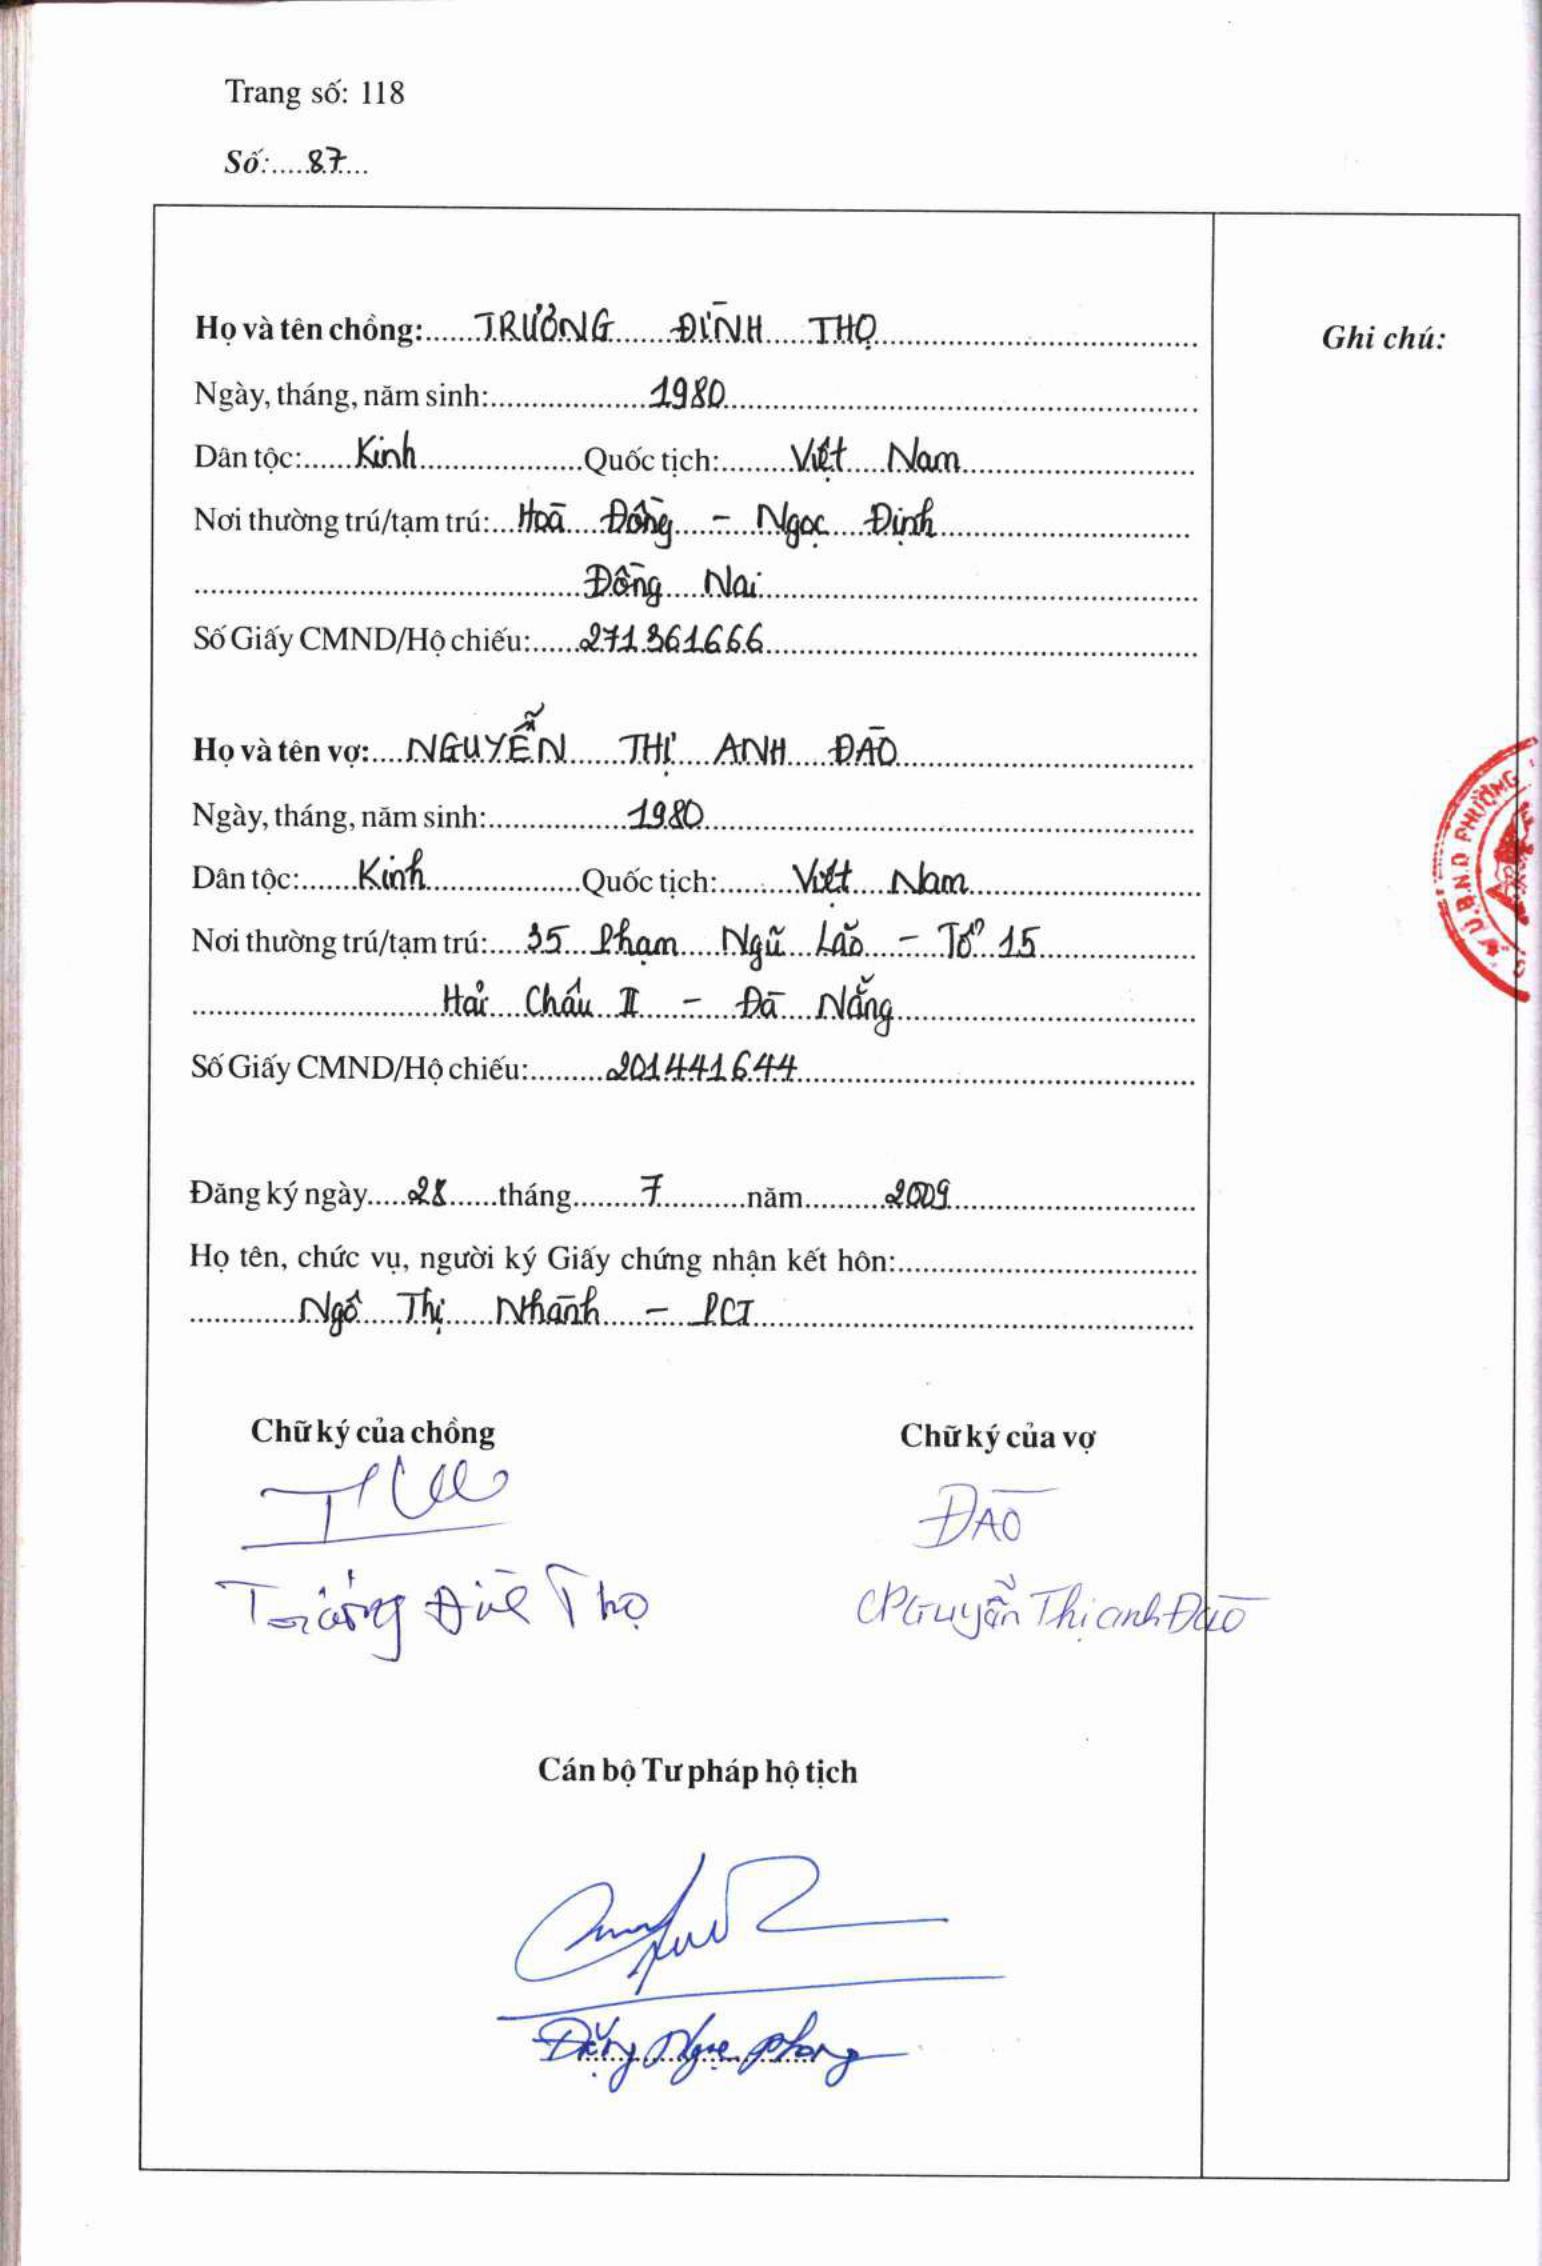 Trang số: 118
Số: 87
Họ và tên chồng: TRƯƠNG ĐÌNH THỌ
Ghi chú:
Ngày, tháng, năm sinh: 1980
Dân tộc: Kinh Quốc tịch: Việt Nam
Nơi thường trú/tạm trú: Hoà Đồng - Ngọc Định
Đồng Nai
Số Giấy CMND/Hộ chiếu: 271361666
Họ và tên vợ: NGUYỄN THỊ ANH ĐÀO
Ngày, tháng, năm sinh: 1980
Dân tộc: Kinh Quốc tịch: Việt Nam
Nơi thường trú/tạm trú: 35 Phạm Ngũ Lão - Tổ 15
Hải Châu II - Đà Nẵng
Số Giấy CMND/Hộ chiếu: 201441644
U.B.N.D PHƯỜNG
Đăng ký ngày 28 tháng 7 năm 2009
Họ tên, chức vụ, người ký Giấy chứng nhận kết hôn:
Ngô Thị Nhành - PCT
Chữ ký của chồng Chữ ký của vợ
ĐÀO
Trương Đình Thọ Nguyễn Thị anh Đào
Cán bộ Tư pháp hộ tịch
Đặng Ngọc Phong